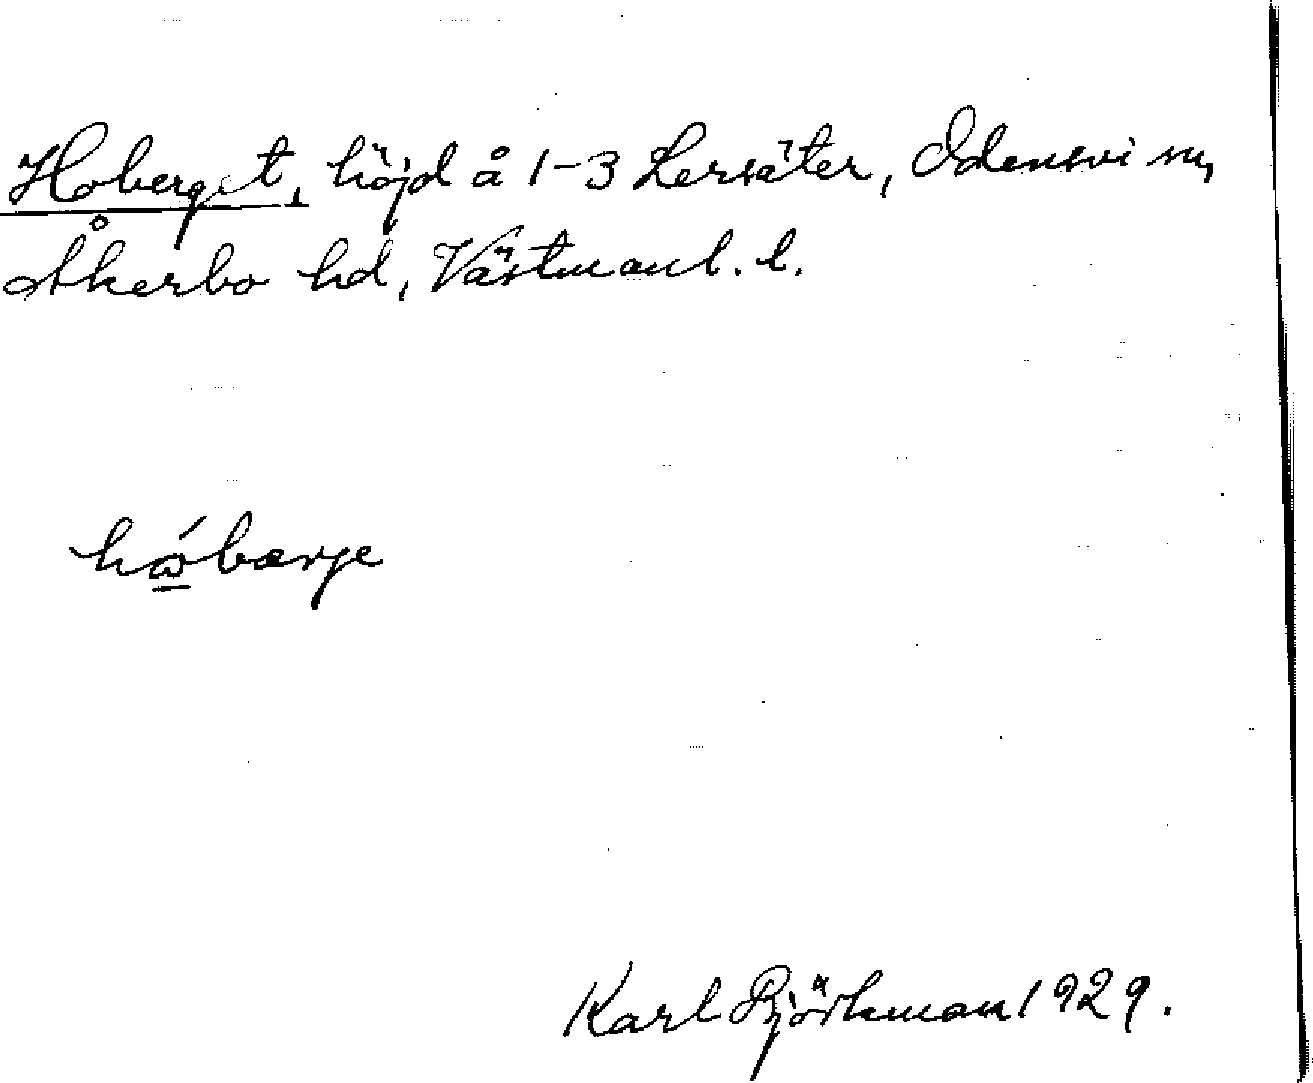 Hoberget, höjd å 1-3 Lersäter, Odensvi sn,
Åkerbo hd, Västmanl. l.
hǿbærje
Karl Björkman 1929.